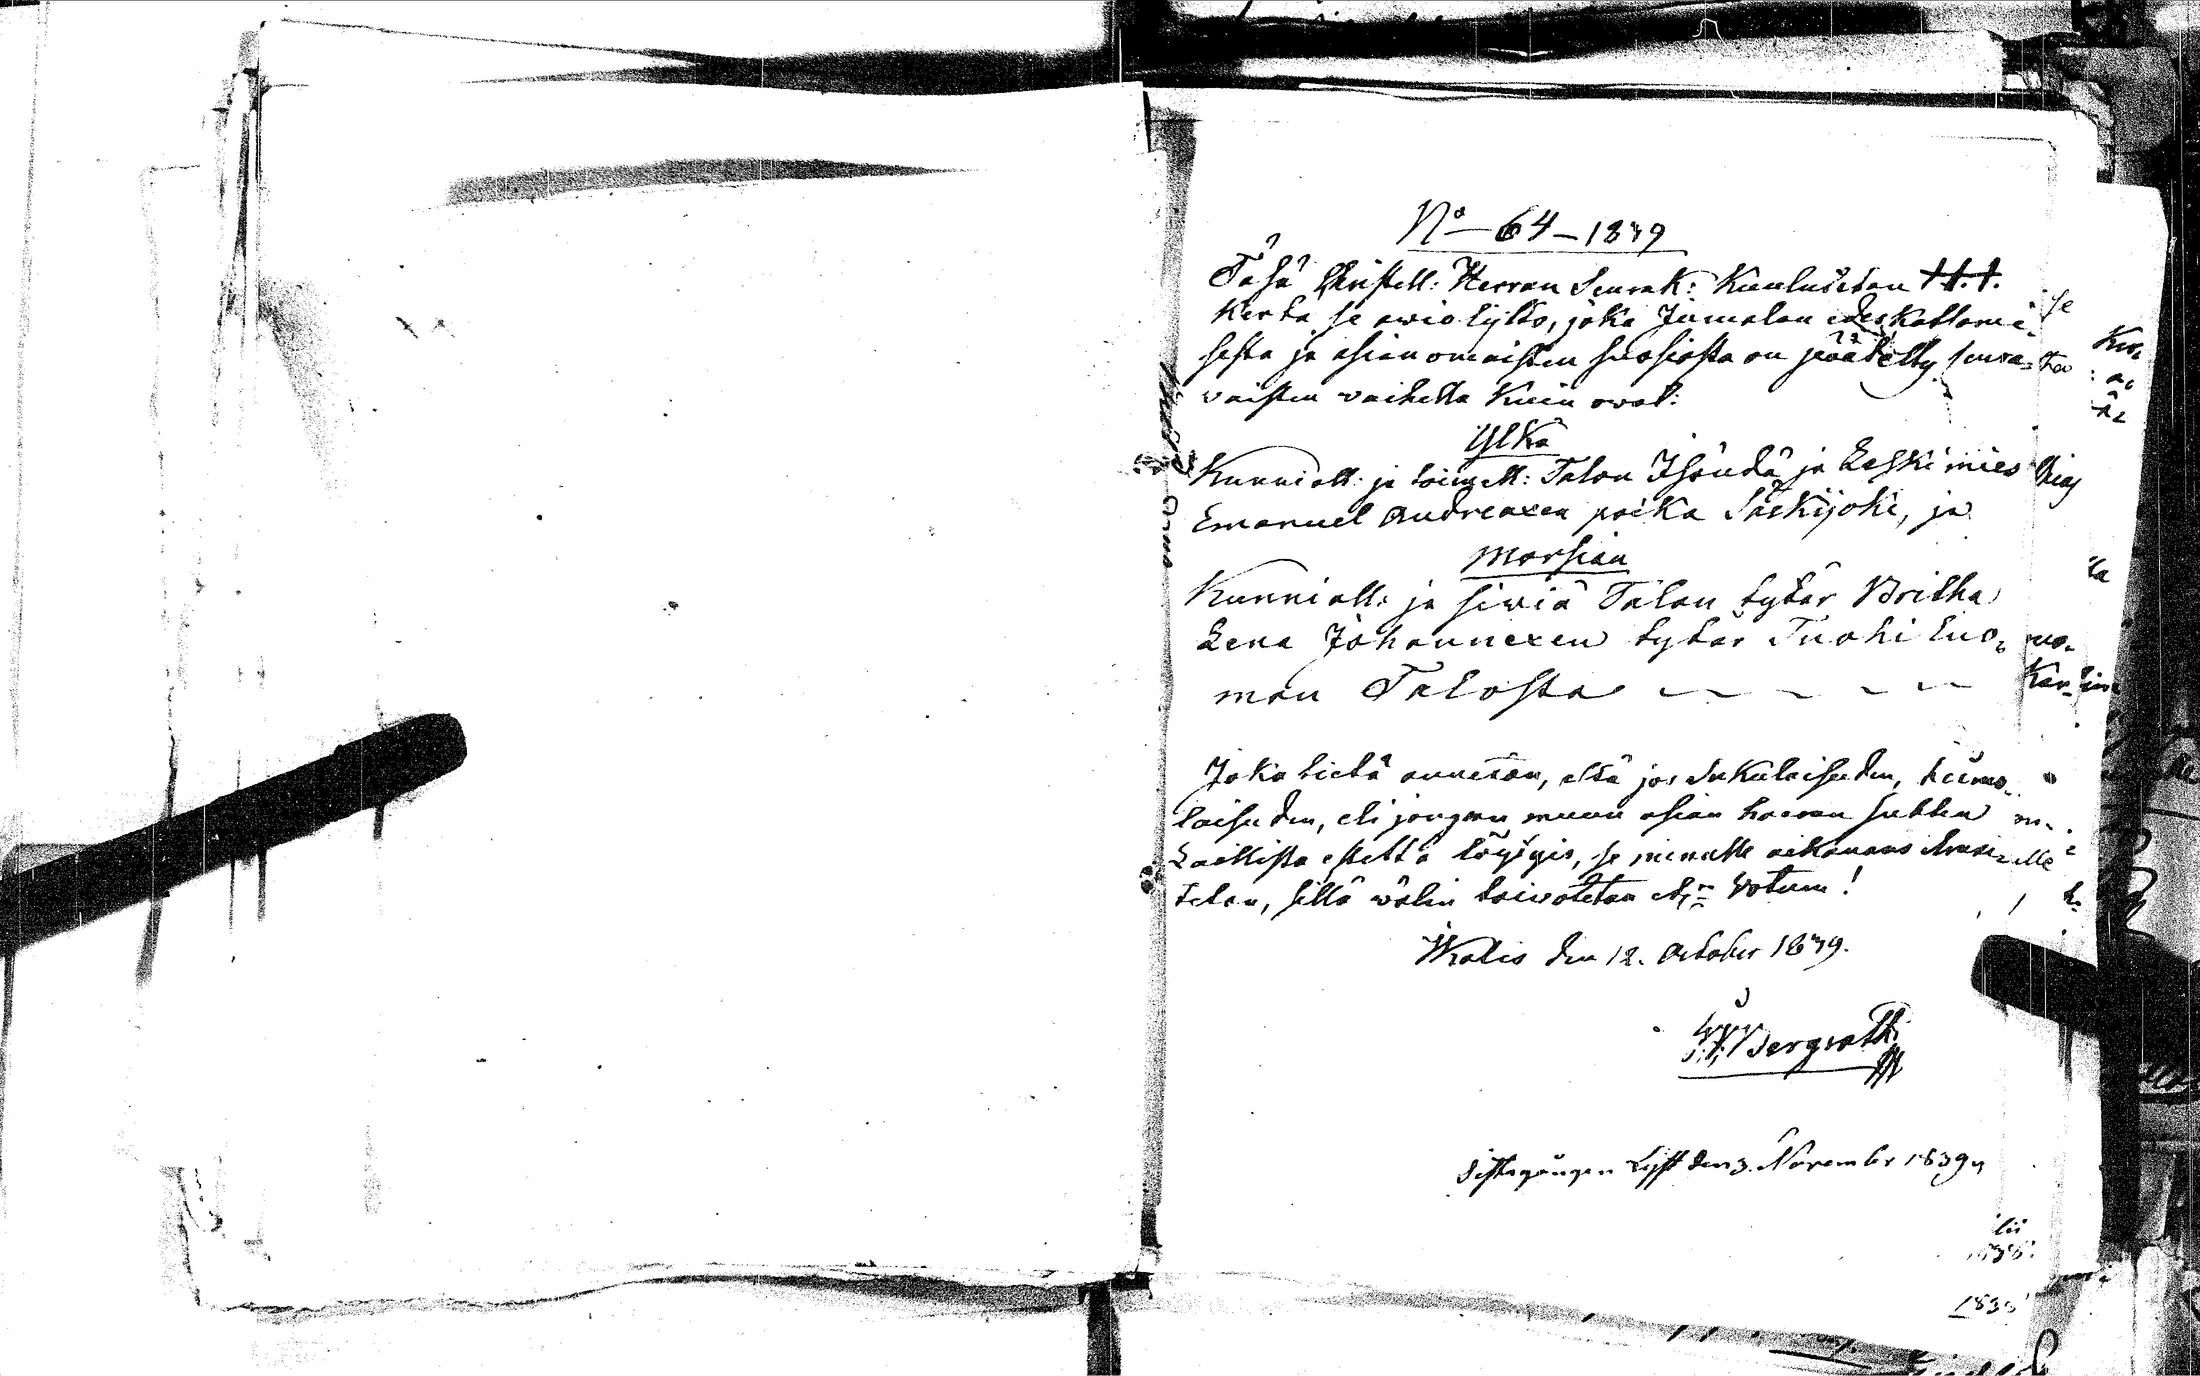 No 64 – 1839
Täsä Christell: Herran Seurak: Kuulutetan +.+.+.
Kerta se awioliitto, joka Jumalan edeskattomi-
sesta ja asian omaisten suosiosta on päätetty seura-
vaisten vaihella kuin ovat:
Ylkä
Kunniall: ja toimell: Talon Isändä ja Leski mies
Emanuel Andreaxen poika Säskijoki, ja
Morsian
Kunniall: ja siwiä Talon tytär Britha
Lena Johannexen tytär Tuohi luo-
man Talosta
Joka tietä annetan, että jos sukulaisuden, heimo-
laisuden, eli jongun muun asian haaran suhten
Laillista estettä löytyis, se minulle aikanans ilmoi-
tetan, sillä wälin toivotetan etc. Votum!
Ikalis den 12. October 1839.
Bergroth
Sista gången Lyst den 3. November 1839